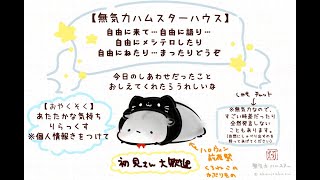 【無気力ハムスターハウス】
自由に来て…自由に語り…
自由にメシテロしたり
自由にねたり…まったりどうぞ
今日のしあわせだったこと
おしえてくれたらうれしいな
【おやくそく】
あたたかな気持ち
りらっくす
※個人情報きをつけて
しゅも チャット
※無気力なので、
すごい時差だったり
全然発言しない
こともあります。
初見さん大歓迎
ハロウィン
前夜祭
くろねこの
かぶりもの